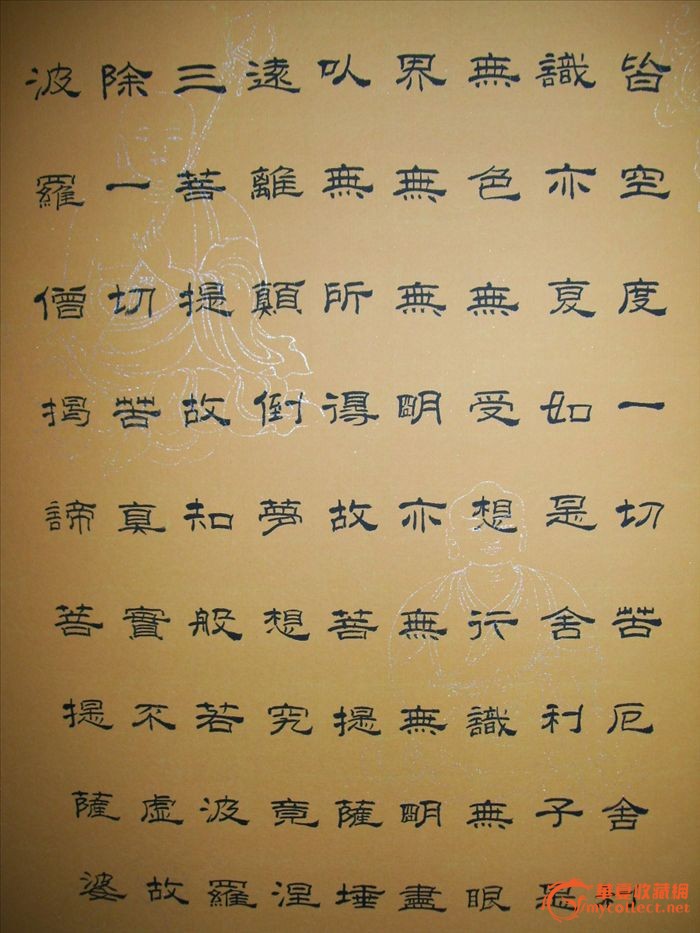 皆空度一切苦厄舍利
識亦复如是舍利子是
無色無受想行識無眼
界無無明亦無無明盡
以無所得故菩提薩埵
遠離顛倒夢想究竟涅
三菩提故知般若波羅
除一切苦真實不虛故
波羅僧揭諦菩提薩婆
華夏收藏網
mycollect.net